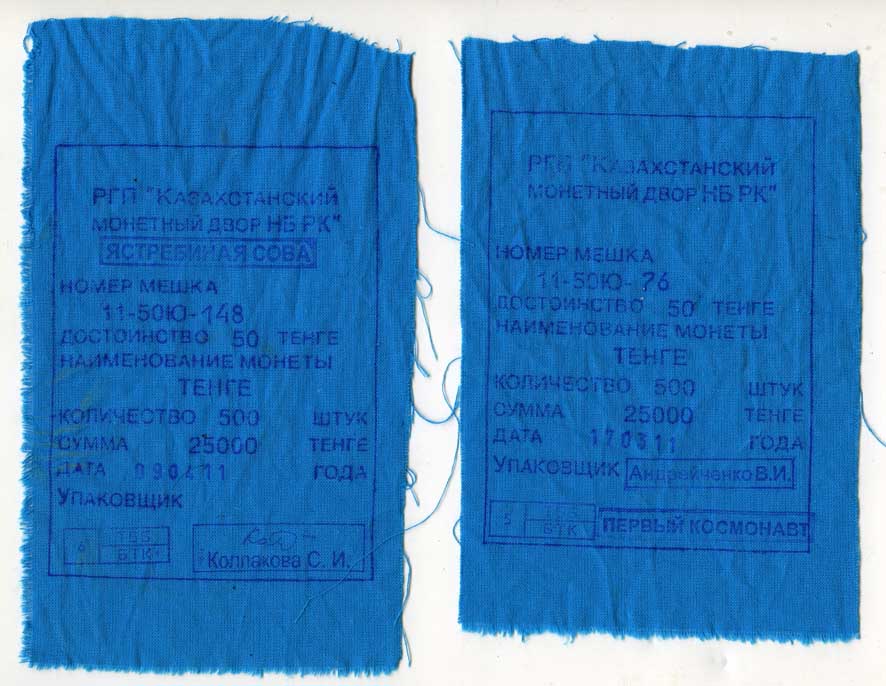 РГП "КАЗАХСТАНСКИЙ
МОНЕТНЫЙ ДВОР НБ РК"
ЯСТРЕБИНАЯ СОВА
НОМЕР МЕШКА
11-50Ю-148
ДОСТОИНСТВО 50 ТЕНГЕ
НАИМЕНОВАНИЕ МОНЕТЫ
ТЕНГЕ
КОЛИЧЕСТВО 500 ШТУК
СУММА 25000 ТЕНГЕ
ДАТА 090411 ГОДА
УПАКОВЩИК
БТК
Колпакова С. И.
РГП "КАЗАХСТАНСКИЙ
МОНЕТНЫЙ ДВОР НБ РК"
НОМЕР МЕШКА
11-50Ю-76
ДОСТОИНСТВО 50 ТЕНГЕ
НАИМЕНОВАНИЕ МОНЕТЫ
ТЕНГЕ
КОЛИЧЕСТВО 500 ШТУК
СУММА 25000 ТЕНГЕ
ДАТА 170311 ГОДА
УПАКОВЩИК Андрейченко В.И.
5 БТК ПЕРВЫЙ КОСМОНАВТ